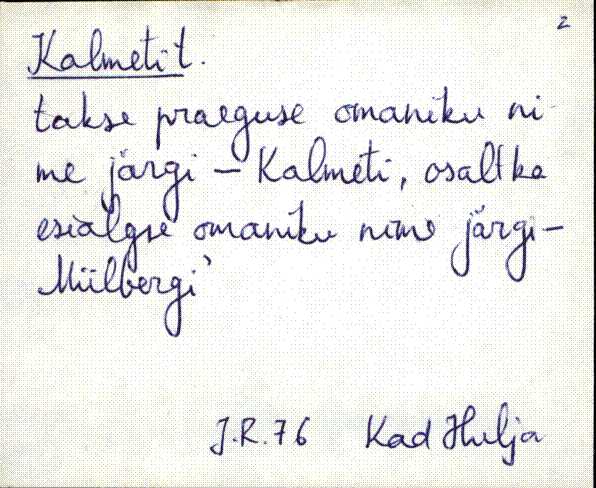 2
Kalmeti t.
takse praeguse omaniku ni-
me järgi – Kalmeti, osalt ka
esialgse omaniku nime järgi –
Miilbergi'
J.R.76 Kad Hulja